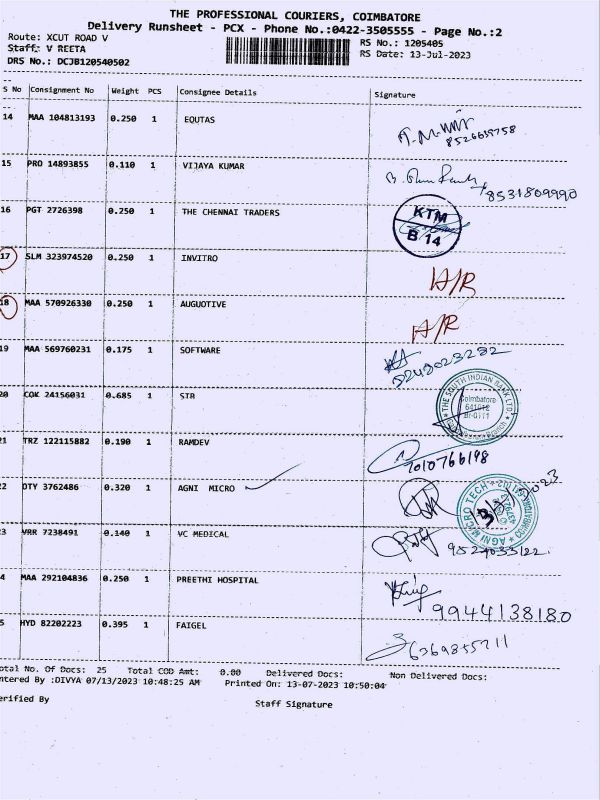 THE PROFESSIONAL COURIERS, COIMBATORE
Delivery Runsheet - PCX - Phone No.:0422-3505555 - Page No.:2
Route: XCUT ROAD V
RS No.: 1205405
Staff: V REETA
RS Date: 13-Jul-2023
DRS No.: DCJB120540502
S No Consignment No Weight PCS Consignee Details Signature
14 MAA 104813193 0.250 1 EQUTAS
8526639758
15 PRO 14893855 0.110 1 VIJAYA KUMAR
8531809990
16 PGT 2726398 0.250 1 THE CHENNAI TRADERS
KTM
B 14
17 SLM 323974520 0.250 1 INVITRO A/R
18 MAA 570926330 0.250 1 AUGUOTIVE A/R
19 MAA 569760231 0.175 1 SOFTWARE
20 COK 24156031 0.685 1 STB
THE SOUTH INDIAN BANK LTD.
Coimbatore
641012
21 TRZ 122115882 0.190 1 RAMDEV 7010766198
22 DTY 3762486 0.320 1 AGNI MICRO
AGNI MICRO TECH
23 VRR 7238491 0.140 1 VC MEDICAL
24 MAA 292104836 0.250 1 PREETHI HOSPITAL 9944138180
25 HYD 82202223 0.395 1 FAIGEL
Total No. Of Docs: 25 Total COD Amt: 0.00 Delivered Docs: Non Delivered Docs:
Entered By :DIVYA 07/13/2023 10:48:25 AM Printed On: 13-07-2023 10:50:04
Verified By
Staff Signature